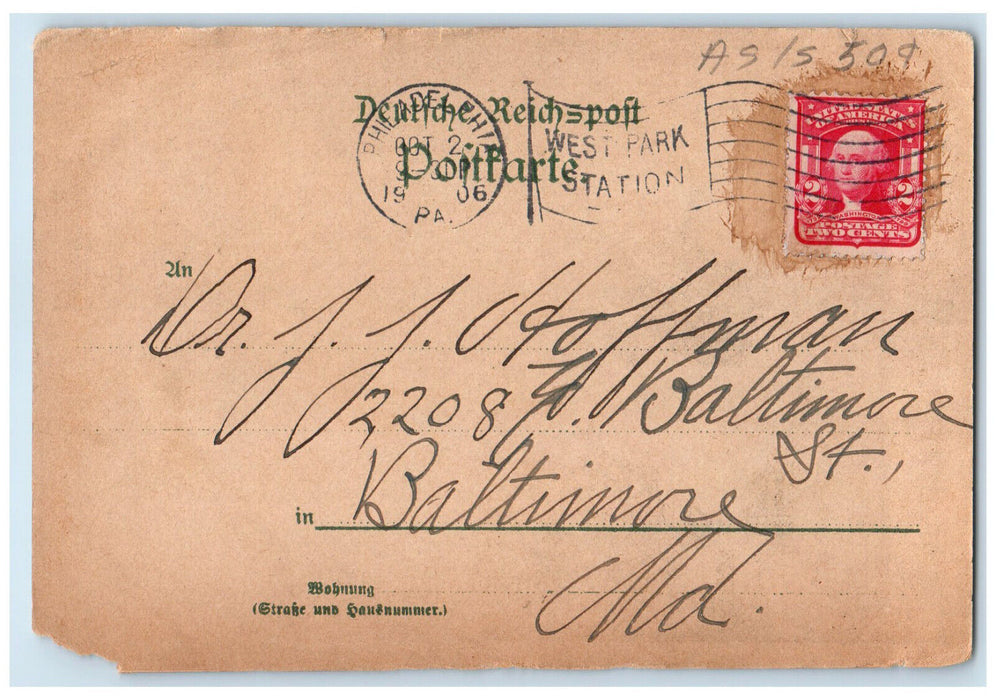 As Is 50¢
Deutsche Reichspost
Postkarte.
PHILADELPHIA
OCT 2
19 06
PA.
WEST PARK
STATION
UNITED STATES
OF AMERICA
2 2
WASHINGTON
POSTAGE
TWO CENTS
An
Dr. J. J. Hoffman
2208 W. Baltimore
St.,
in Baltimore
Md.
Wohnung
(Straße und Hausnummer.)